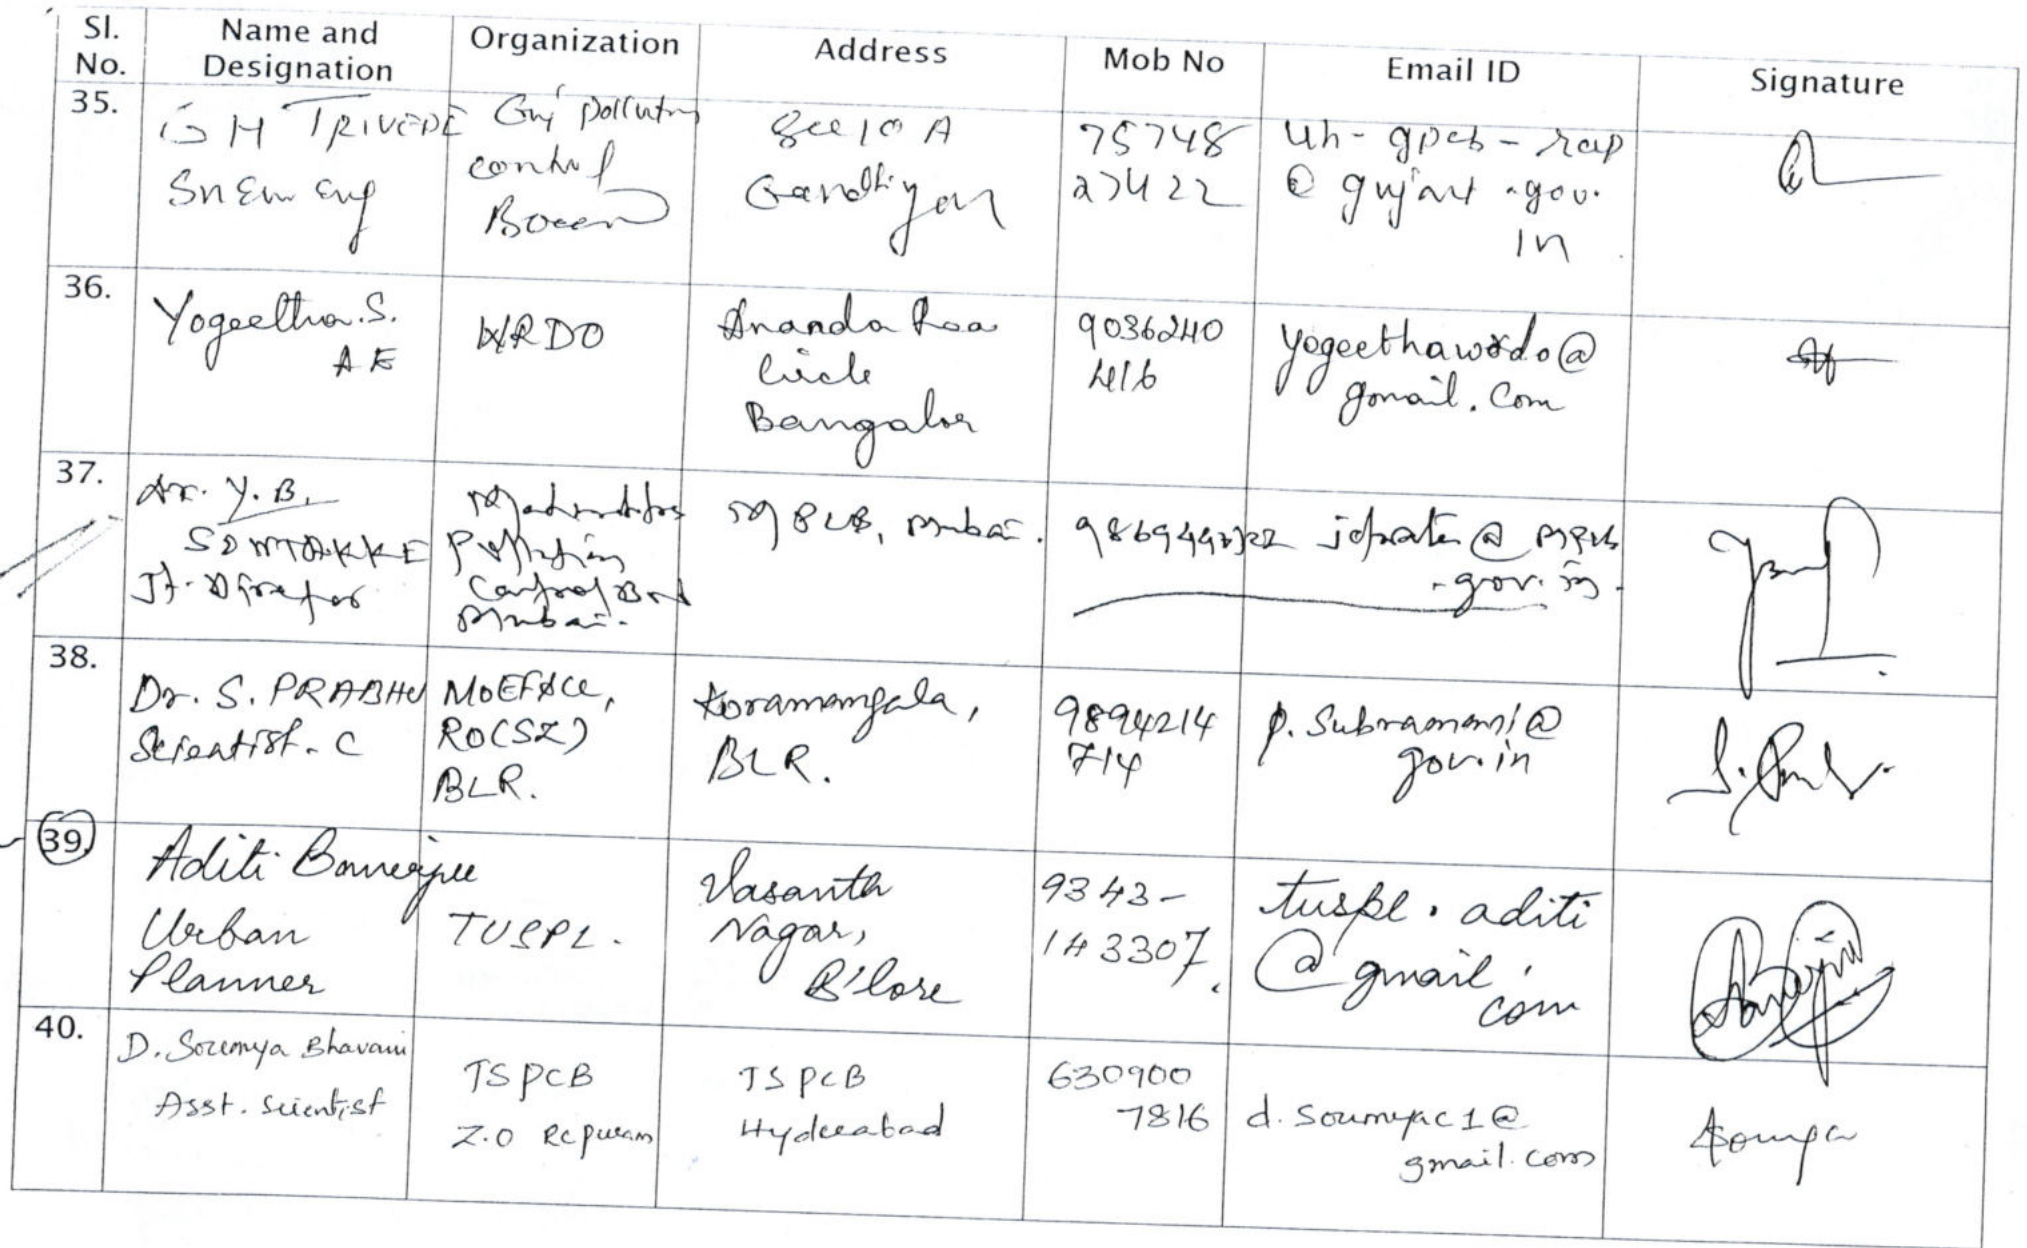 Sl. No. Name and Designation Organization Address Mob No Email ID Signature
35.
G H TRIVEDI
Control
Sec 10 A
75748
27422
uh-gpcb-rap
@ gujarat .gov.
in
36.
Yogeetha.S.
A E
WRDO
Ananda Rao
Circle
Bangalor
9036240
416
yogeethawrdo@
gmail.com
37.
Dr. Y.B.
SONTAKKE
Jt. Director
Pollution
Control Brd
Mumbai.
MPCB, Mumbai.
gov.in.
38.
Dr. S. PRABHU
Scientist-C
MoEF&CC,
RO(SZ)
BLR.
Koramangala,
BLR.
9894214
714
p.subramani@
gov.in
39.
Aditi Banerjee
Urban
Planner
TUSPL.
Vasanth
Nagar,
B'lore
9343-
143307.
tuspl.aditi
@gmail.
com
40.
D. Soumya Bhavani
Asst. Scientist
TSPCB
Z.O RCpuram
TSPCB
Hyderabad
630900
7816
d.soumyac1@
gmail.com
Soumya